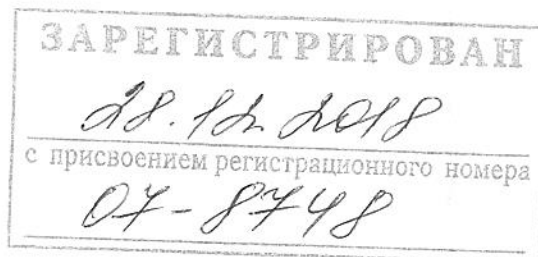 ЗАРЕГИСТРИРОВАН
28.12.2018
с присвоением регистрационного номера
07-8748